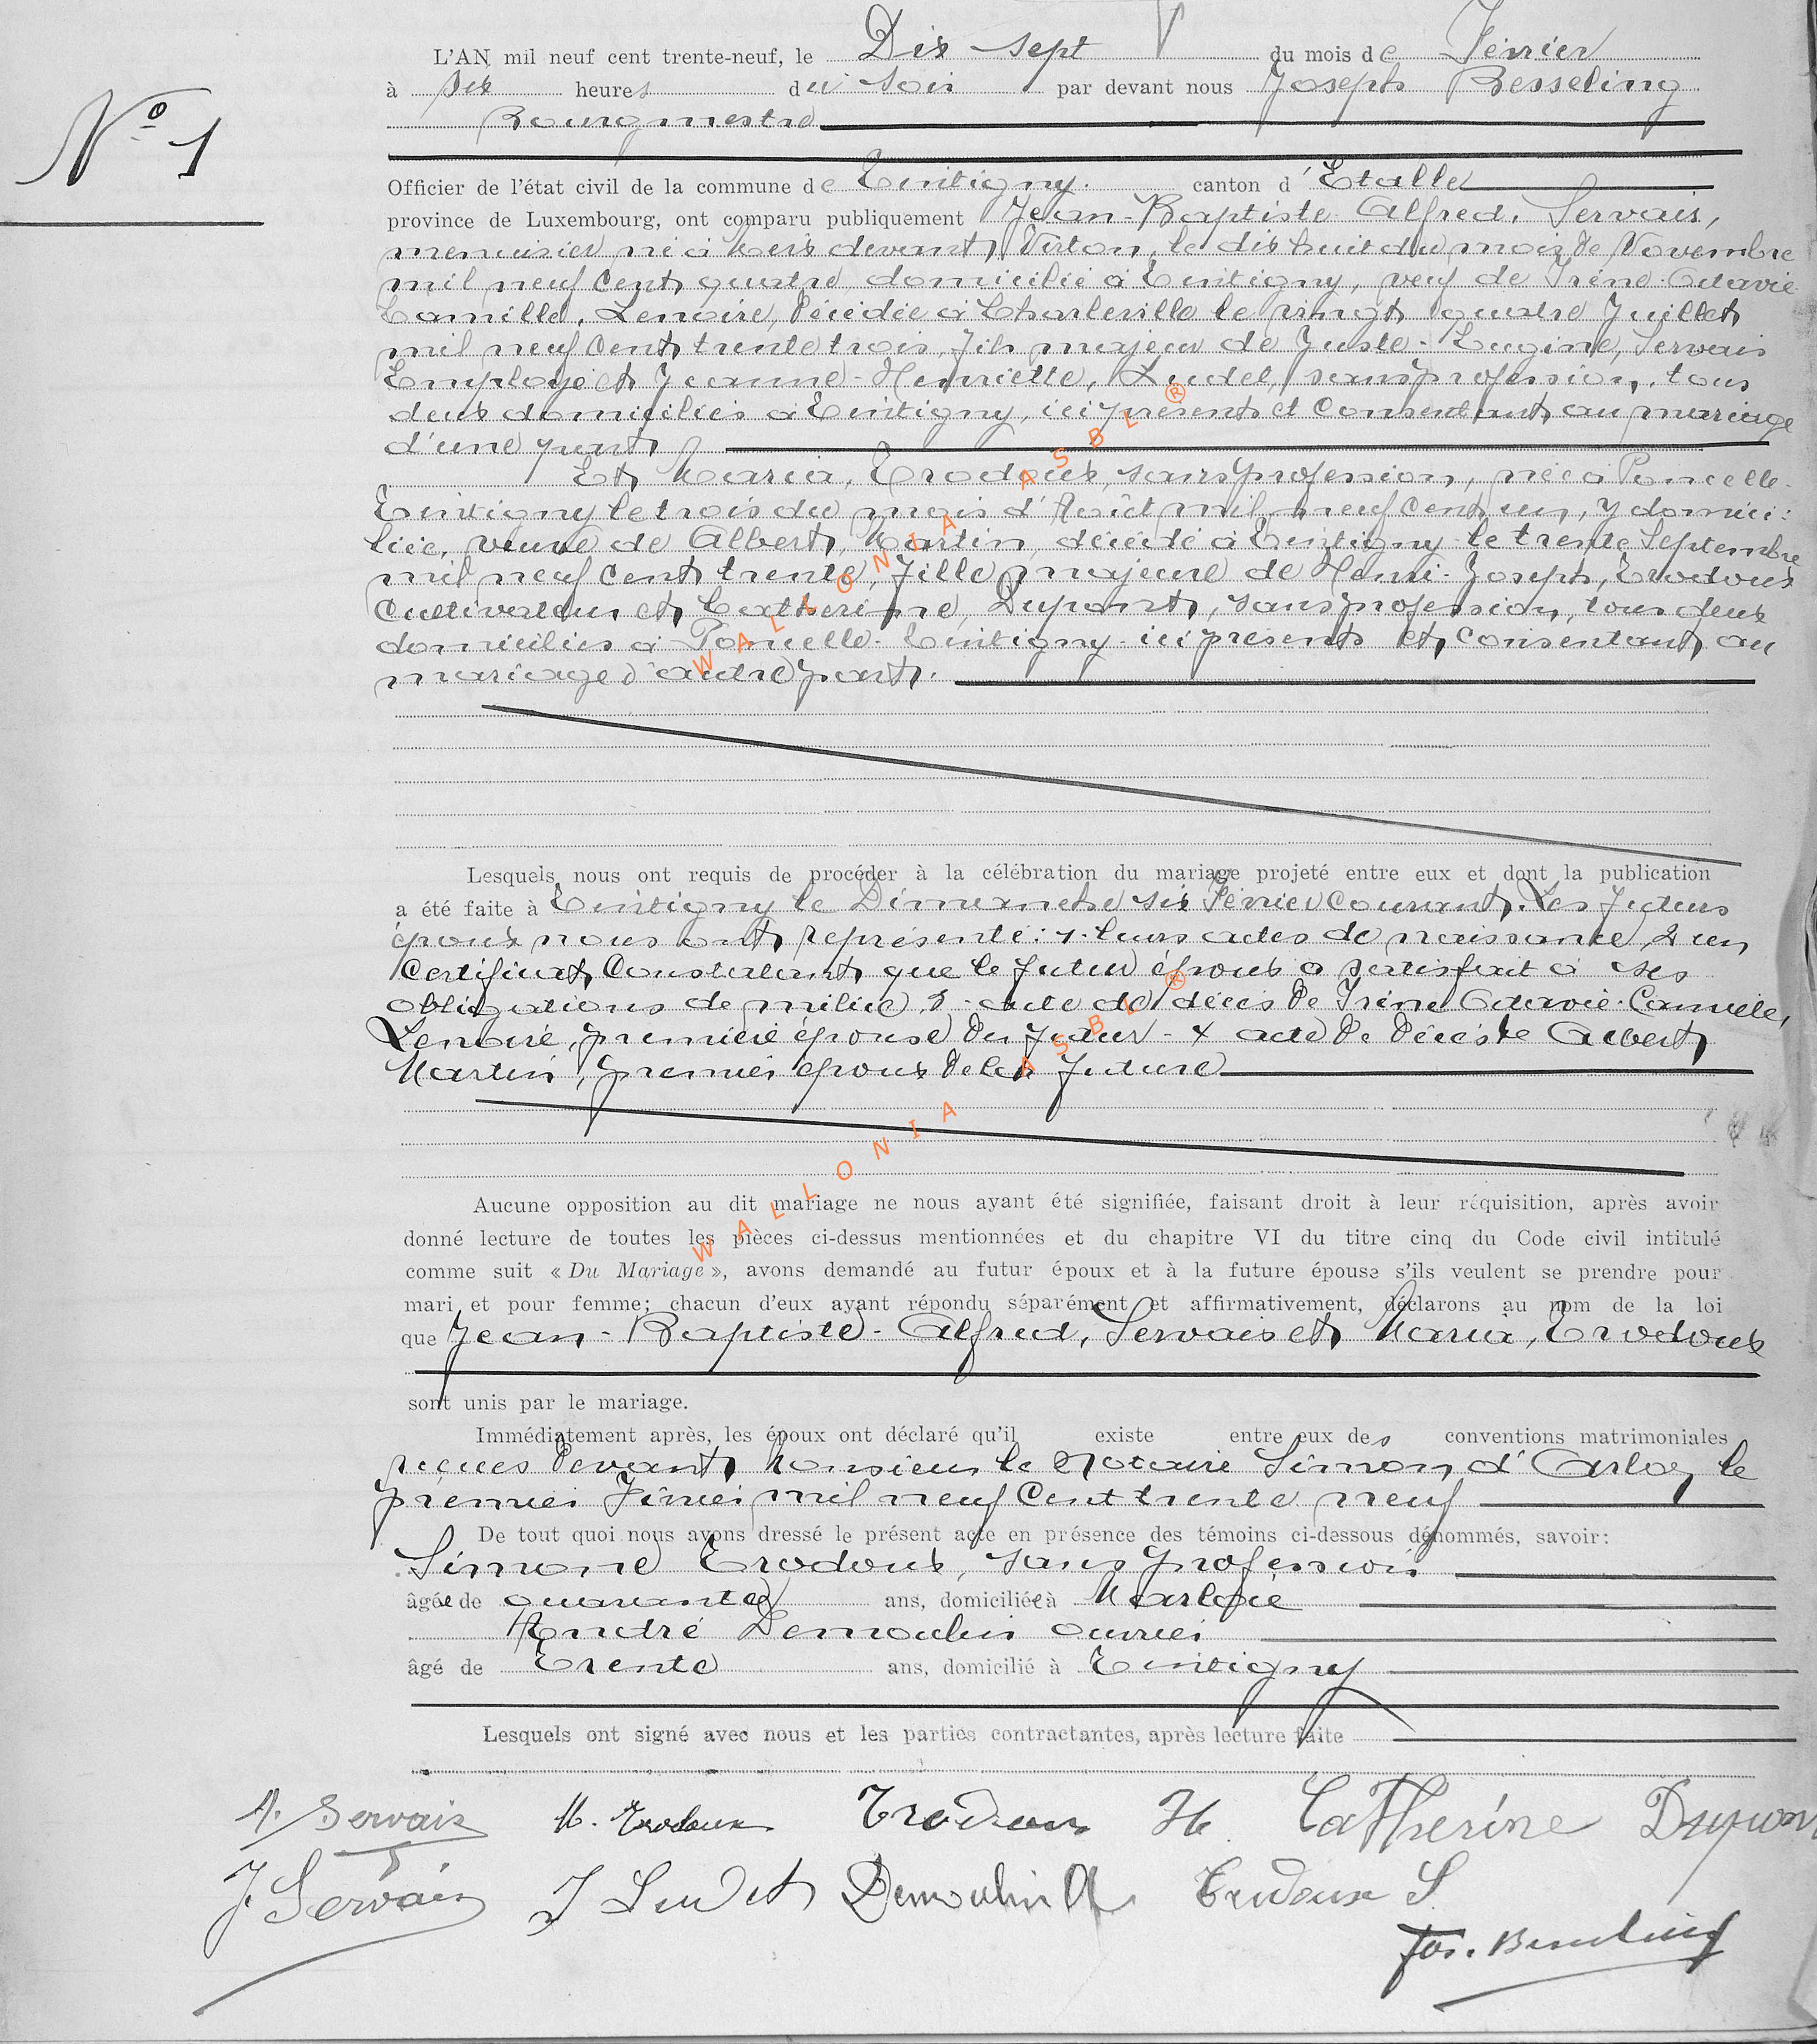 L'AN mil neuf cent trente-neuf, le Dix sept du mois de Février
à six heures du soir par devant nous Joseph Besseling
Bourgmestre
N° 1
Officier de l'état civil de la commune de Tintigny. canton d'Etalle
province de Luxembourg, ont comparu publiquement Jean-Baptiste Alfred, Servais,
menuisier né à Meix devant Virton, le dix huit du mois de Novembre
mil neuf cent quatre domicilié à Tintigny, veuf de Irène-Octavie
Camille, Lenoire, décédée à Charleville le vingt quatre Juillet
mil neuf cent trente trois, fils majeur de Juste-Eugène, Servais
Employé et Jeanne-Henriette, Ludet, sans profession, tous
deux domiciliés à Tintigny, ici présents et consentant au mariage
d'une part
Et Maria, Trodoux, sans profession, née à Poncelle-
Tintigny le trois du mois d'Août mil neuf cent un, y domici:
liée, veuve de Albert, Martin, décédé à Tintigny le trente Septembre
mil neuf cent trente, fille majeure de Henri-Joseph, Trodoux
cultivateur et Catherine, Dupont, sans profession, tous deux
domiciliés à Poncelle-Tintigny-ici présents et consentant au
mariage d'autre part.
Lesquels nous ont requis de procéder à la célébration du mariage projeté entre eux et dont la publication
a été faite à Tintigny le Dimanche six Février courant. Les futurs
époux nous ont représenté: 1. leurs actes de naissance, 2 un
certificat constatant que le futur époux a satisfait à ses
obligations de milice, 3-acte de décès de Irène Octavie-Camille,
Lenoire, première épouse du futur-4 acte de décès de Albert
Martin, premier époux de la future
Aucune opposition au dit mariage ne nous ayant été signifiée, faisant droit à leur réquisition, après avoir
donné lecture de toutes les pièces ci-dessus mentionnées et du chapitre VI du titre cinq du Code civil intitulé
comme suit « Du Mariage », avons demandé au futur époux et à la future épouse s'ils veulent se prendre pour
mari et pour femme; chacun d'eux ayant répondu séparément et affirmativement, déclarons au nom de la loi
que Jean-Baptiste-Alfred, Servais et Maria, Trodoux
sont unis par le mariage.
Immédiatement après, les époux ont déclaré qu'il existe entre eux des conventions matrimoniales
reçues devant Monsieur le Notaire Simon d'Arlon le
premier Février mil neuf cent trente neuf
De tout quoi nous avons dressé le présent acte en présence des témoins ci-dessous dénommés, savoir:
Simone Trodoux, sans profession
âgée de quarante ans, domiciliée à Marloie
André Demoulin ouvrier
âgé de Trente ans, domicilié à Tintigny
Lesquels ont signé avec nous et les parties contractantes, après lecture faite
A. Servais M. Trodoux Trodoux H. Catherine Dupont
J. Servais J Ludet Demoulin A Trodoux S.
Jos. Besseling
WALLONIA ASBL ®
WALLONIA ASBL ®